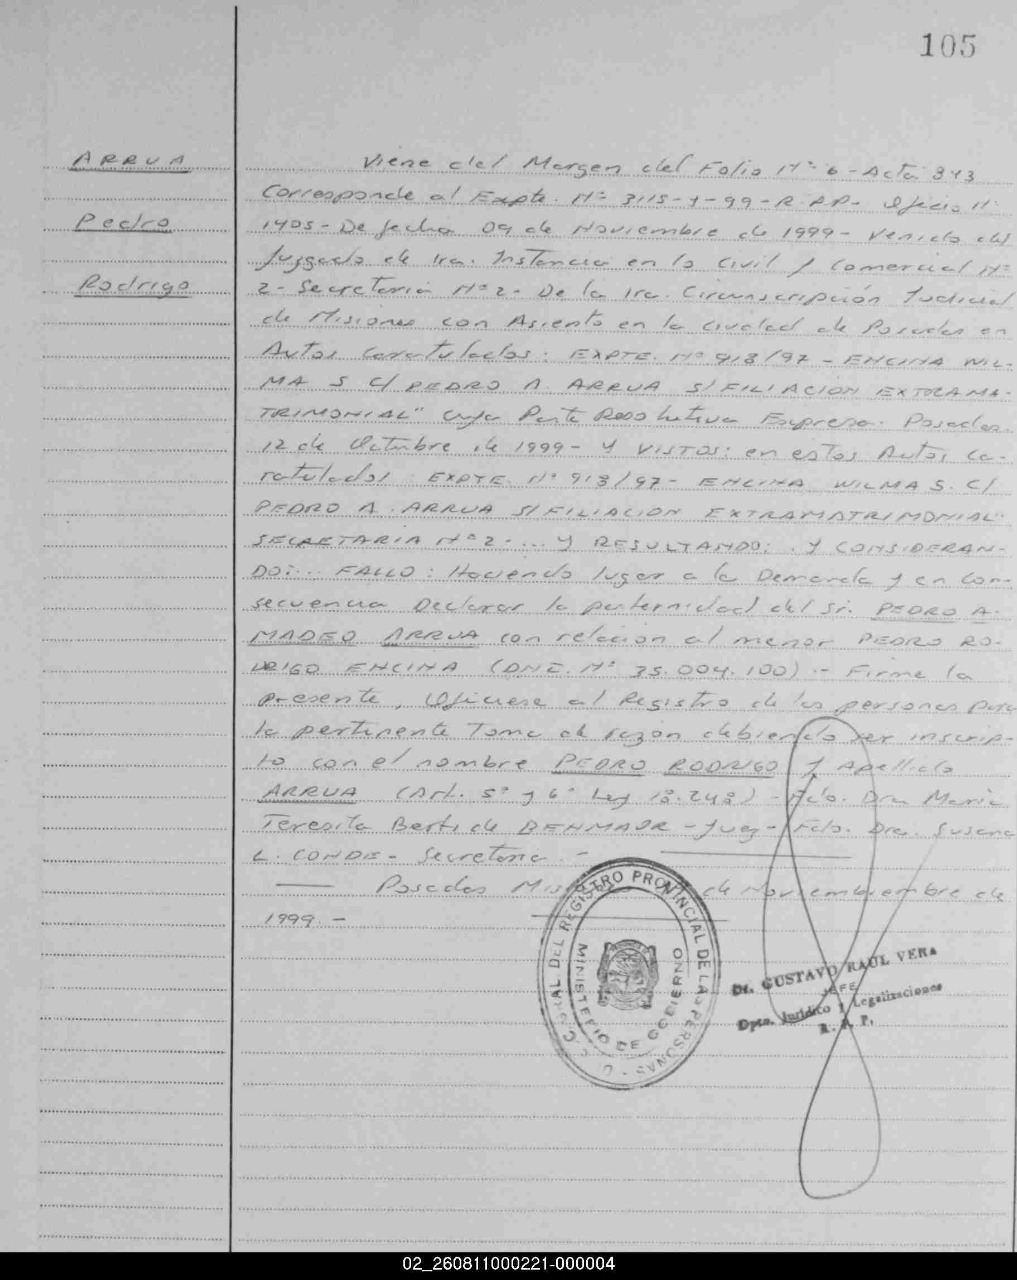 105
ARRUA
Pedro
Rodrigo
Viene del Margen del Folio Nº 6 - Acta 343
Corresponde al Expte. Nº 3115-Y-99-R.P.P- Oficio Nº
1405- De fecha 09 de Noviembre de 1999- Venido del
Juzgado de 1ra. Instancia en lo Civil y Comercial Nº
2- Secretaria Nº 2- De la 1ra. Circunscripción Judicial
de Misiones con Asiento en la Ciudad de Posadas en
Autos Caratulados: EXPTE. Nº 913/97 - ENCINA WIL-
MA S C/ PEDRO A. ARRUA S/FILIACION EXTRAMA-
TRIMONIAL" cuya Parte Resolutiva Expresa: Posadas
12 de Octubre de 1999- Y VISTOS: en estos Autos Ca-
ratulados: EXPTE. Nº 913/97- ENCINA WILMA S. C/
PEDRO A. ARRUA S/FILIACION EXTRAMATRIMONIAL"
SECRETARIA Nº 2-... Y RESULTANDO:.. Y CONSIDERAN-
DO:... FALLO: Haciendo lugar a la Demanda y en Con-
secuencia Declarar la paternidad del Sr. PEDRO A-
MADEO ARRUA con relación al menor PEDRO RO-
DRIGO ENCINA (DNI. Nº 35.004.100) .- Firme la
presente, Ofíciese al Registro de las personas para
la pertinente Toma de razón debiendo ser inscrip-
to con el nombre PEDRO RODRIGO y Apellido
ARRUA (Art. 5º y 6º Ley 18.248) - Fdo. Dra Maria
Teresita Berti de BEHMADR - Juez - Fdo. Dra. Susana
L. CONDE - Secretaria .-
Posadas Mis de Noviembiembre de
1999.-
REGISTRO PROVINCIAL DE LAS PERSONAS
MINISTERIO DE GOBIERNO
Dr. GUSTAVO RAUL VERA
JEFE
Dpto. Jurídico y Legalizaciones
R. P. P.
02_260811000221-000004